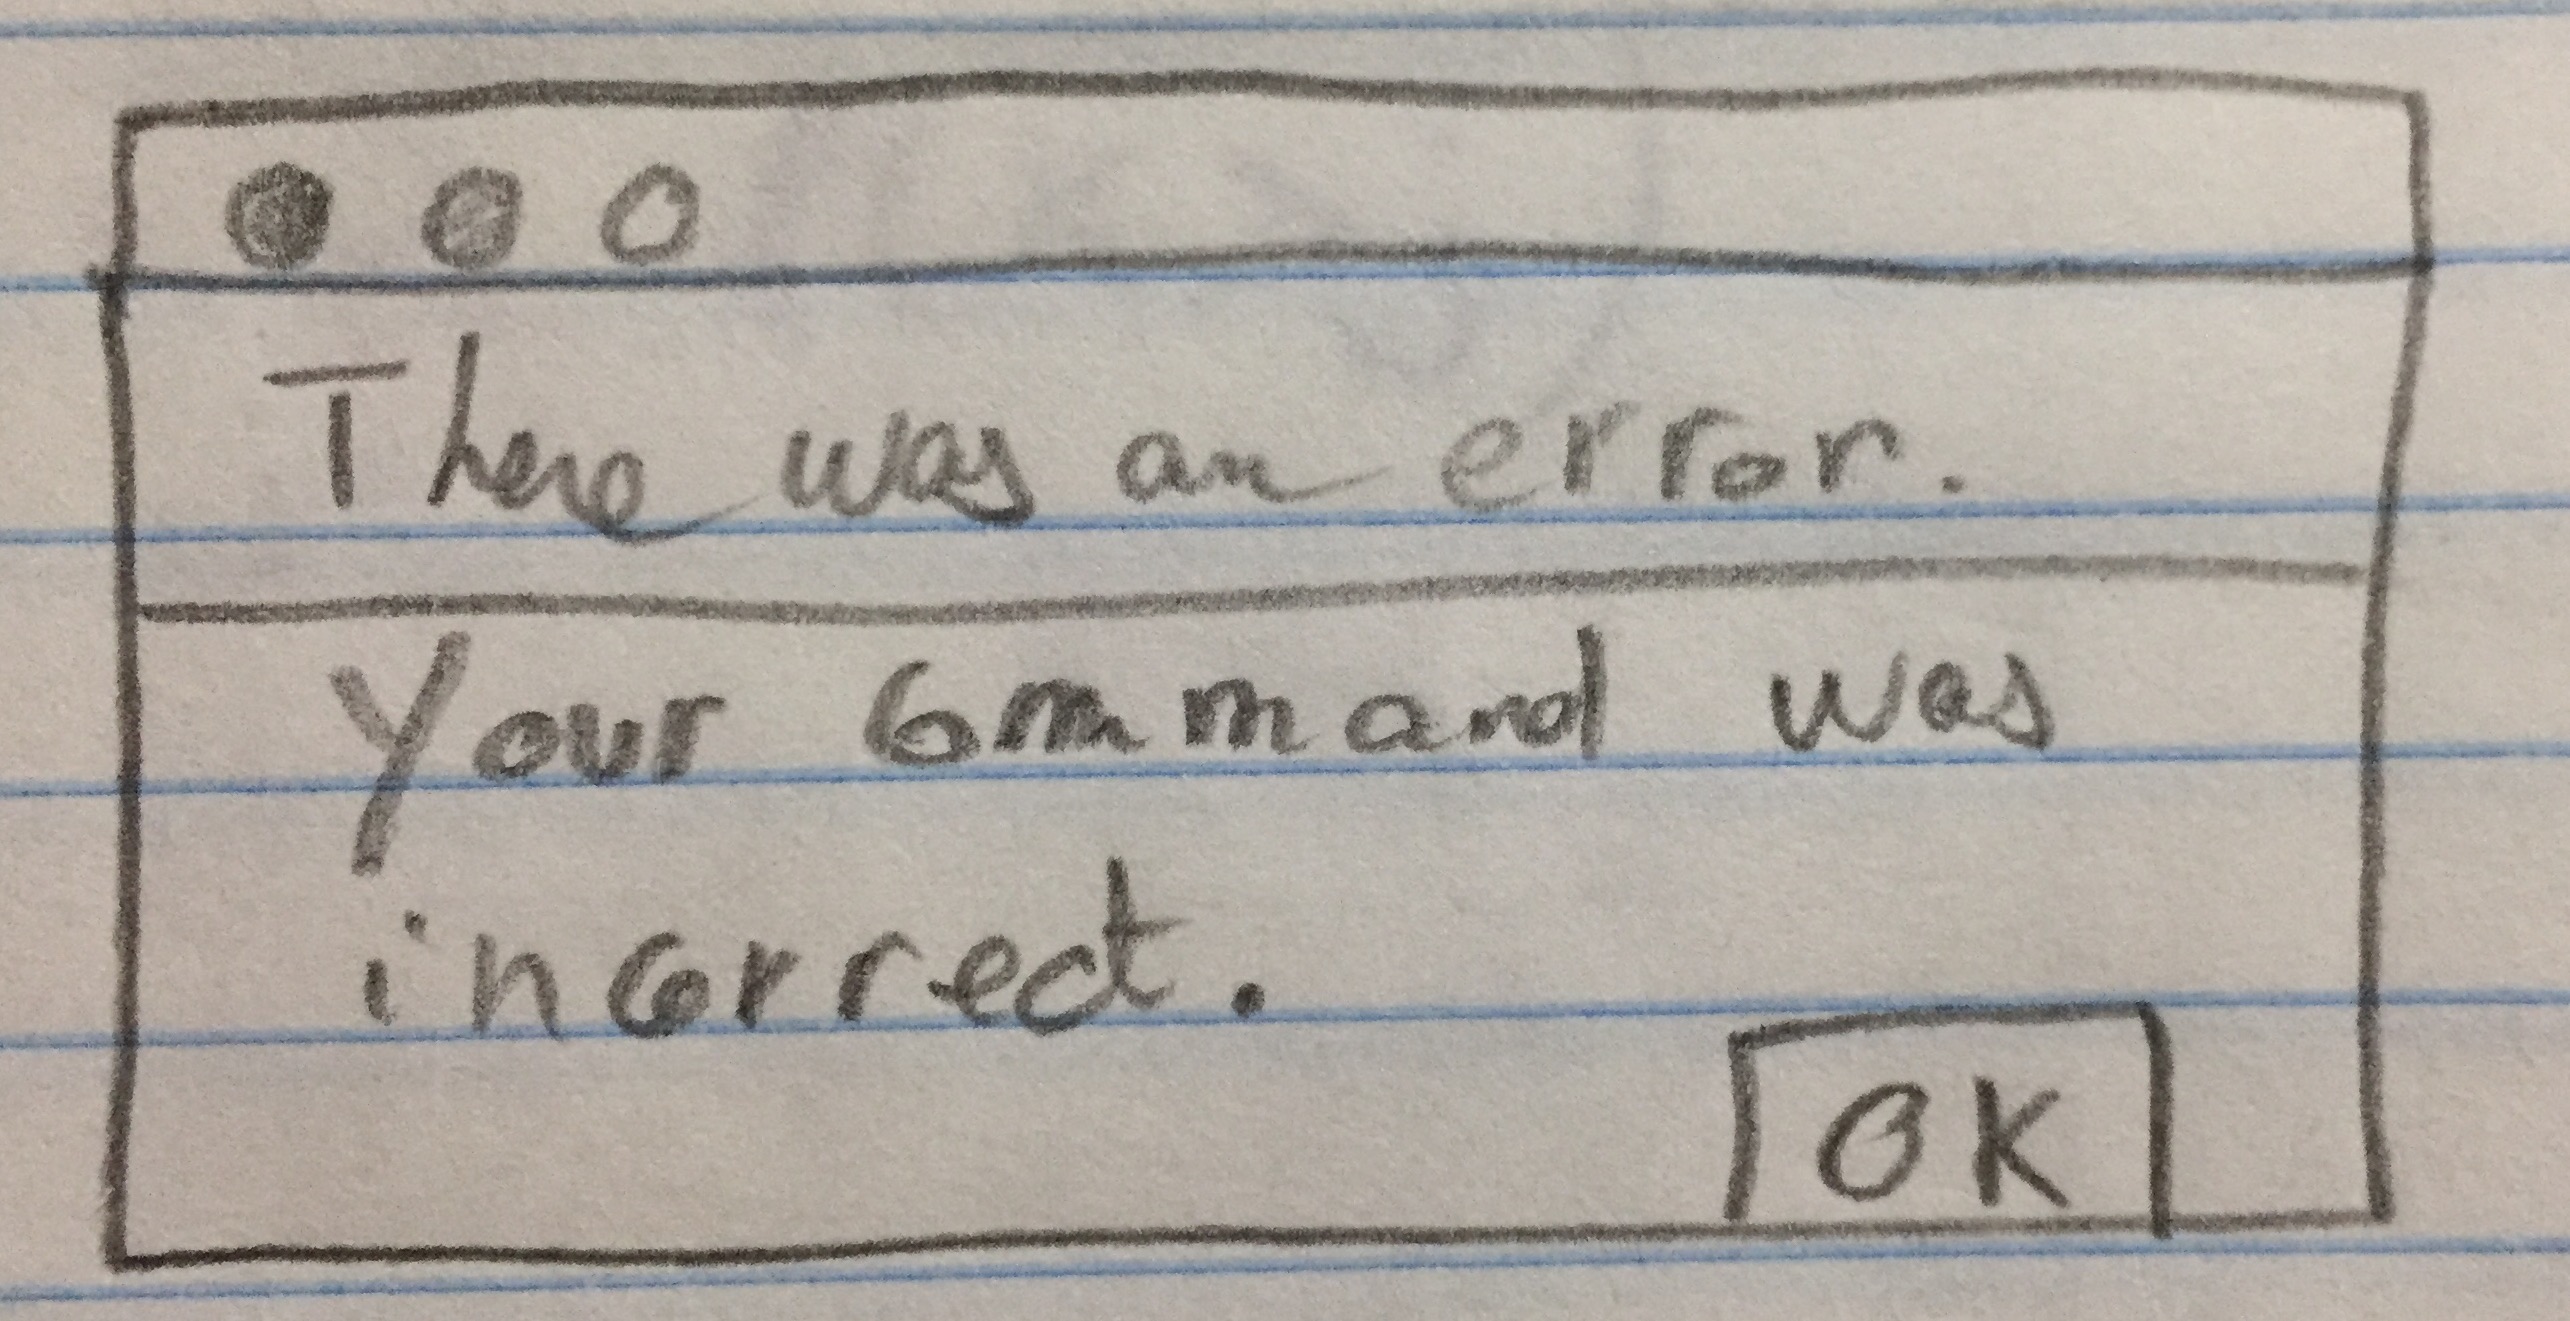 There was an error.
Your command was
incorrect.
OK